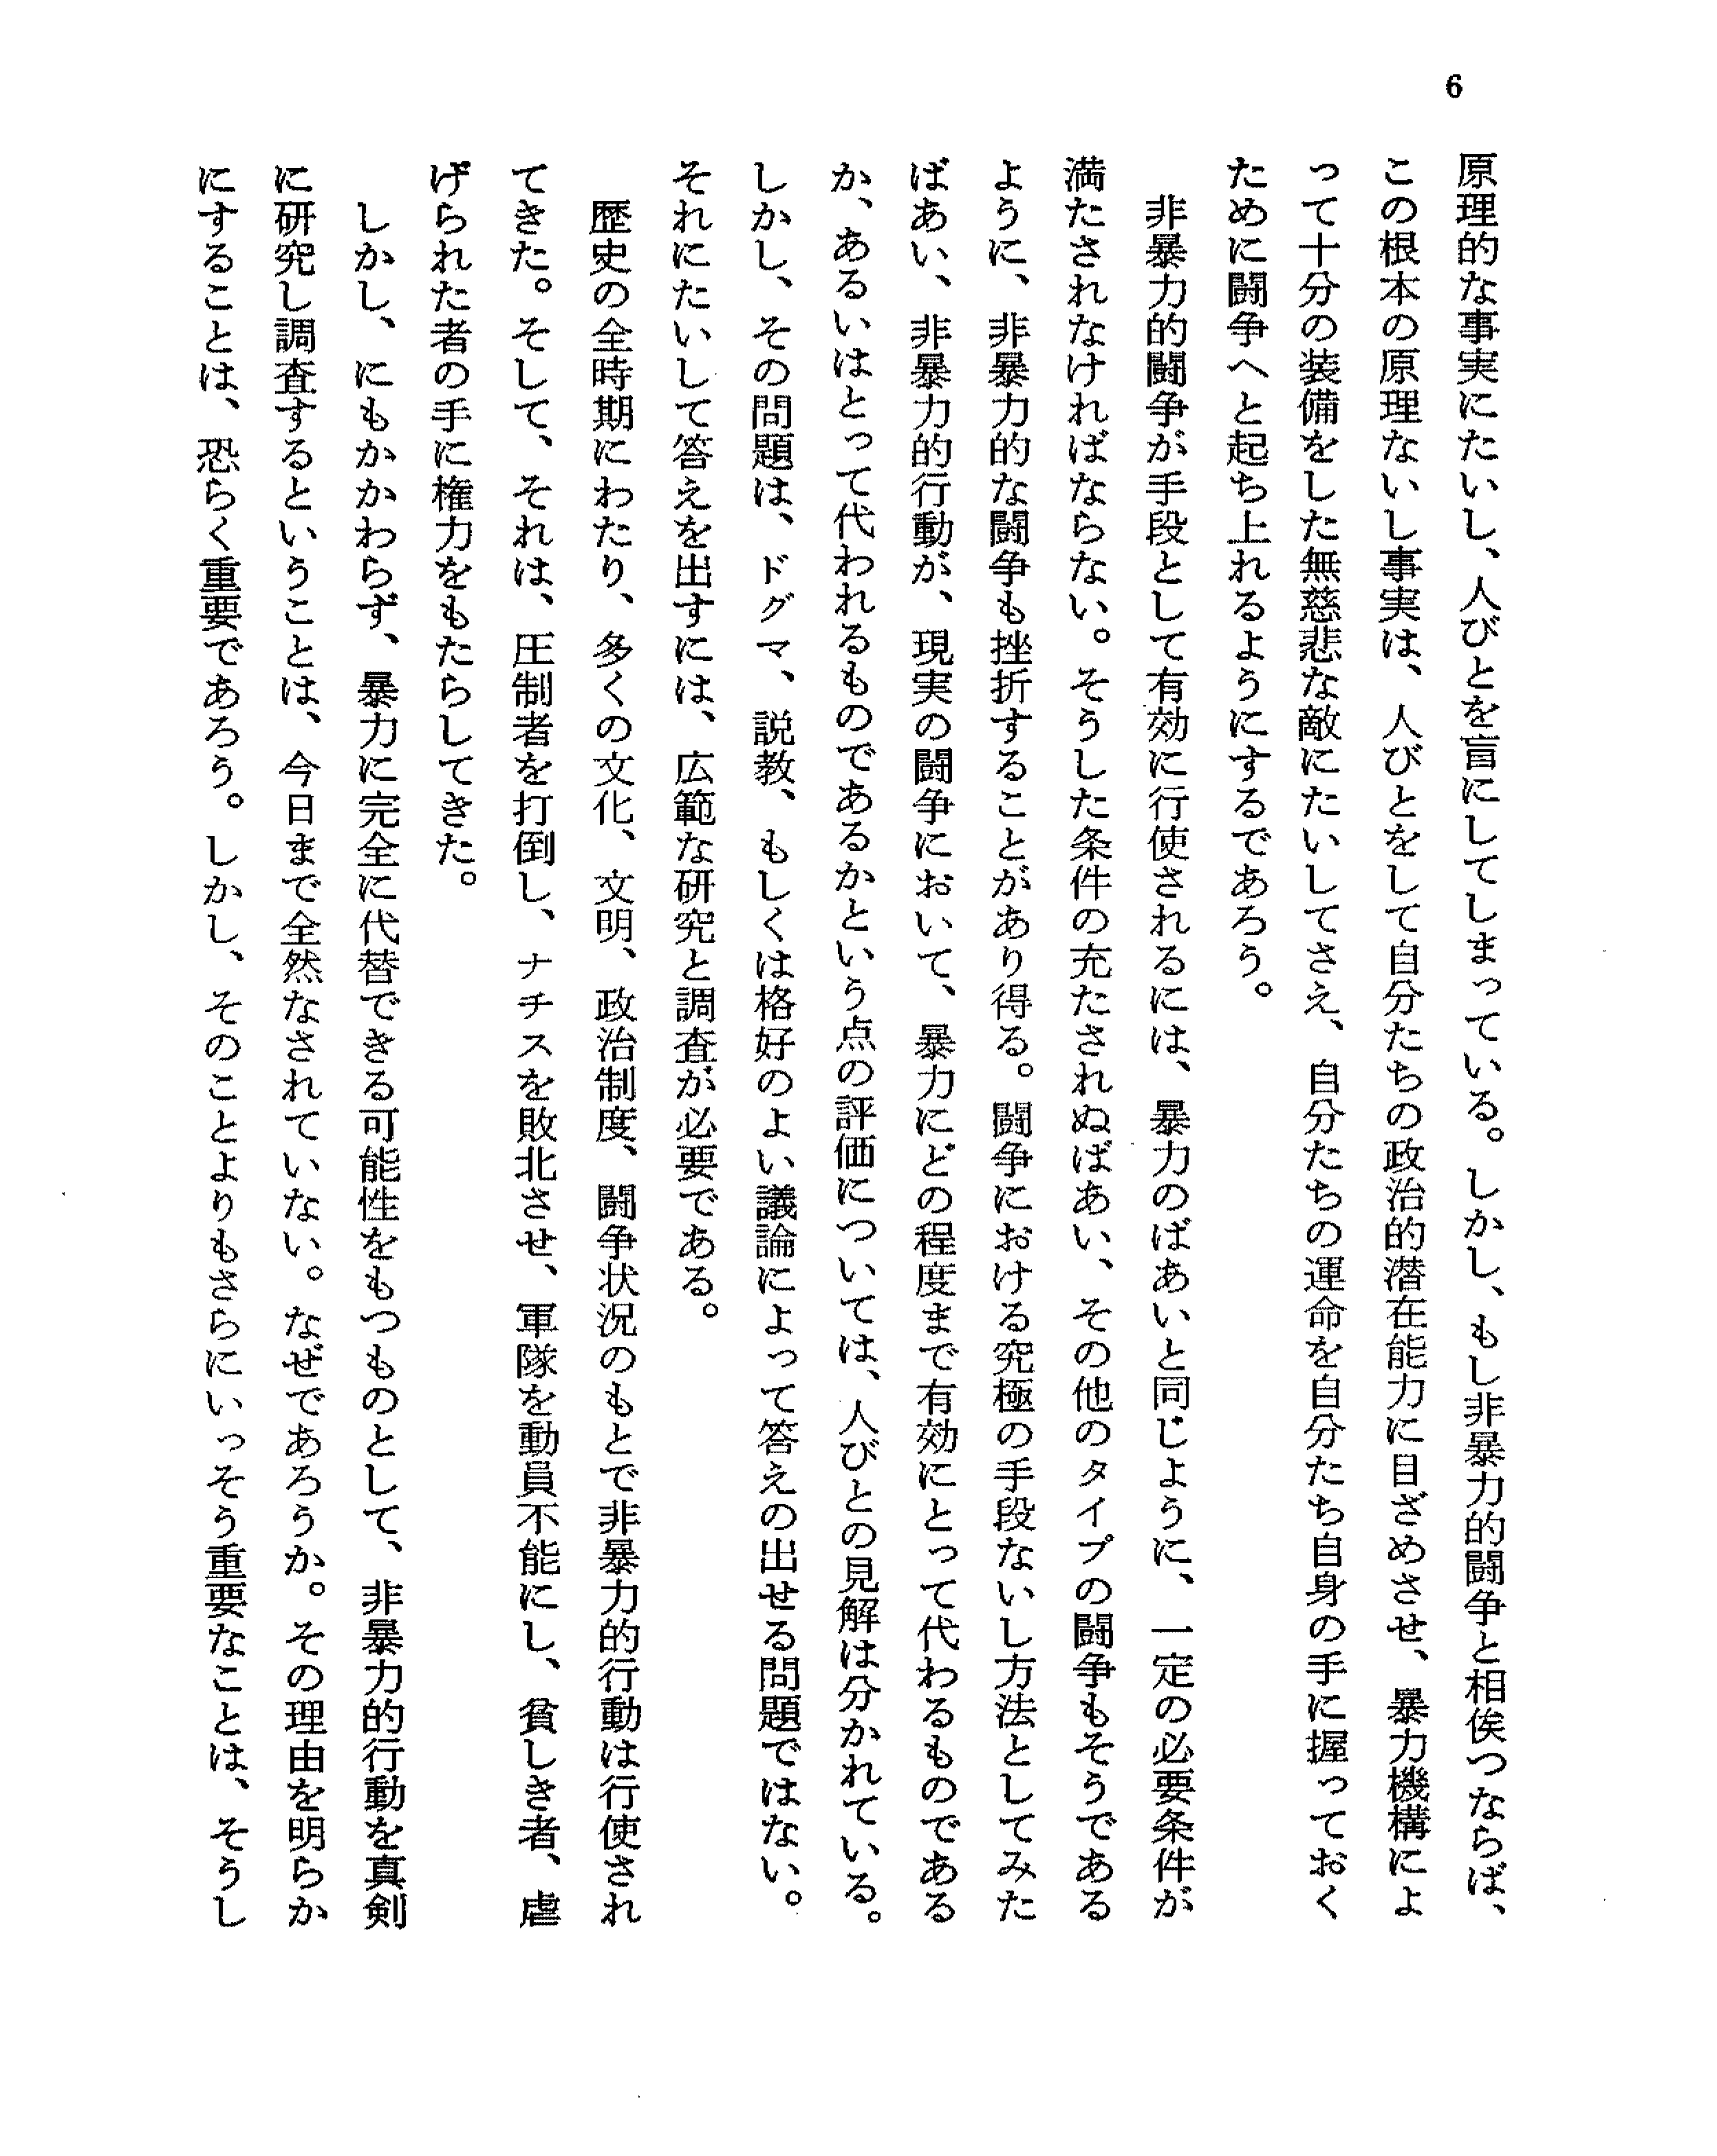 6
原理的な事実にたいし、人びとを盲にしてしまっている。しかし、もし非暴力的闘争と相俟つならば、
この根本の原理ないし事実は、人びとをして自分たちの政治的潜在能力に目ざめさせ、暴力機構によ
って十分の装備をした無慈悲な敵にたいしてさえ、自分たちの運命を自分たち自身の手に握っておく
ために闘争へと起ち上れるようにするであろう。
非暴力的闘争が手段として有効に行使されるには、暴力のばあいと同じように、一定の必要条件が
満たされなければならない。そうした条件の充たされぬばあい、その他のタイプの闘争もそうである
ように、非暴力的な闘争も挫折することがあり得る。闘争における究極の手段ないし方法としてみた
ばあい、非暴力的行動が、現実の闘争において、暴力にどの程度まで有効にとって代わるものである
か、あるいはとって代われるものであるかという点の評価については、人びとの見解は分かれている。
しかし、その問題は、ドグマ、説教、もしくは格好のよい議論によって答えの出せる問題ではない。
それにたいして答えを出すには、広範な研究と調査が必要である。
歴史の全時期にわたり、多くの文化、文明、政治制度、闘争状況のもとで非暴力的行動は行使され
てきた。そして、それは、圧制者を打倒し、ナチスを敗北させ、軍隊を動員不能にし、貧しき者、虐
げられた者の手に権力をもたらしてきた。
しかし、にもかかわらず、暴力に完全に代替できる可能性をもつものとして、非暴力的行動を真剣
に研究し調査するということは、今日まで全然なされていない。なぜであろうか。その理由を明らか
にすることは、恐らく重要であろう。しかし、そのことよりもさらにいっそう重要なことは、そうし